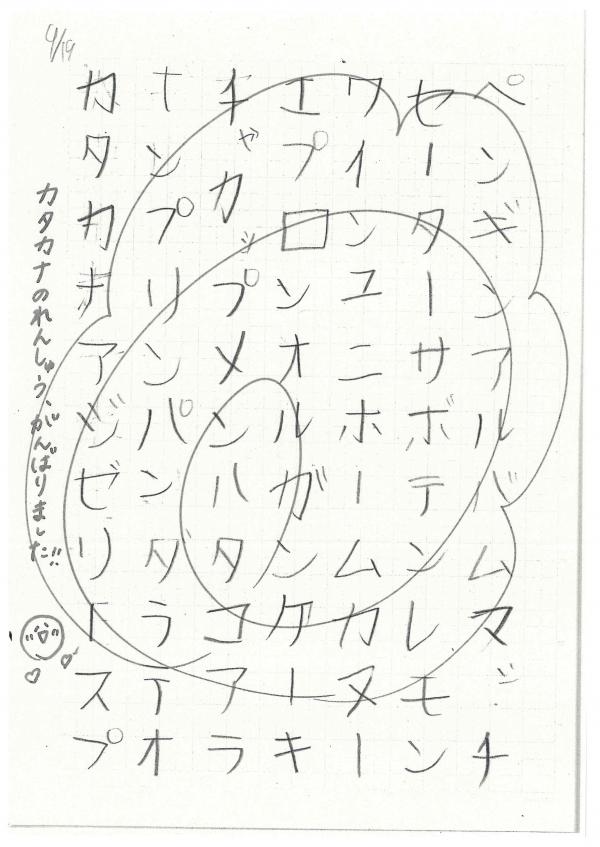 4/19
ペンギンアルバムマッチ
セーターサボテンレモン
ワインユニホームカヌー
エプロンオルガンケーキ
キャカップメンハタコアラ
ナンプリンパンタラテオ
カタカナアゾゼリトスプ
カタカナのれんしゅう、がんばりました!!